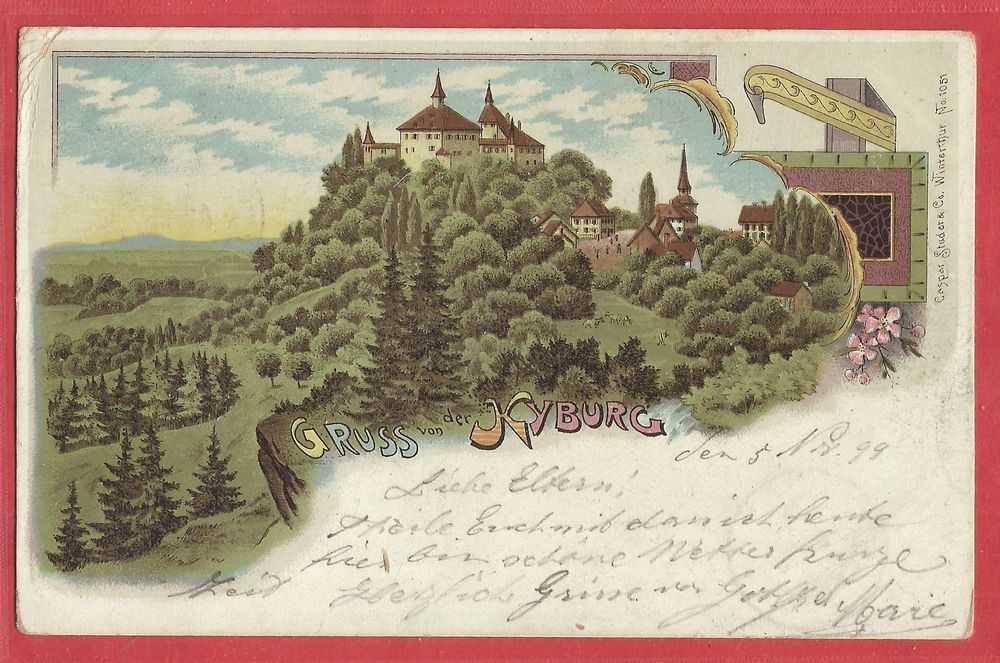 Gruss von der Kyburg
Caspar Studer & Co. Winterthur No. 1051
den 5 Nov. 99
Liebe Eltern!
Theile Euch mit das ich heute
hier bin schöne Wetter kurze
Zeit Herzlich Grüsse von
Marie